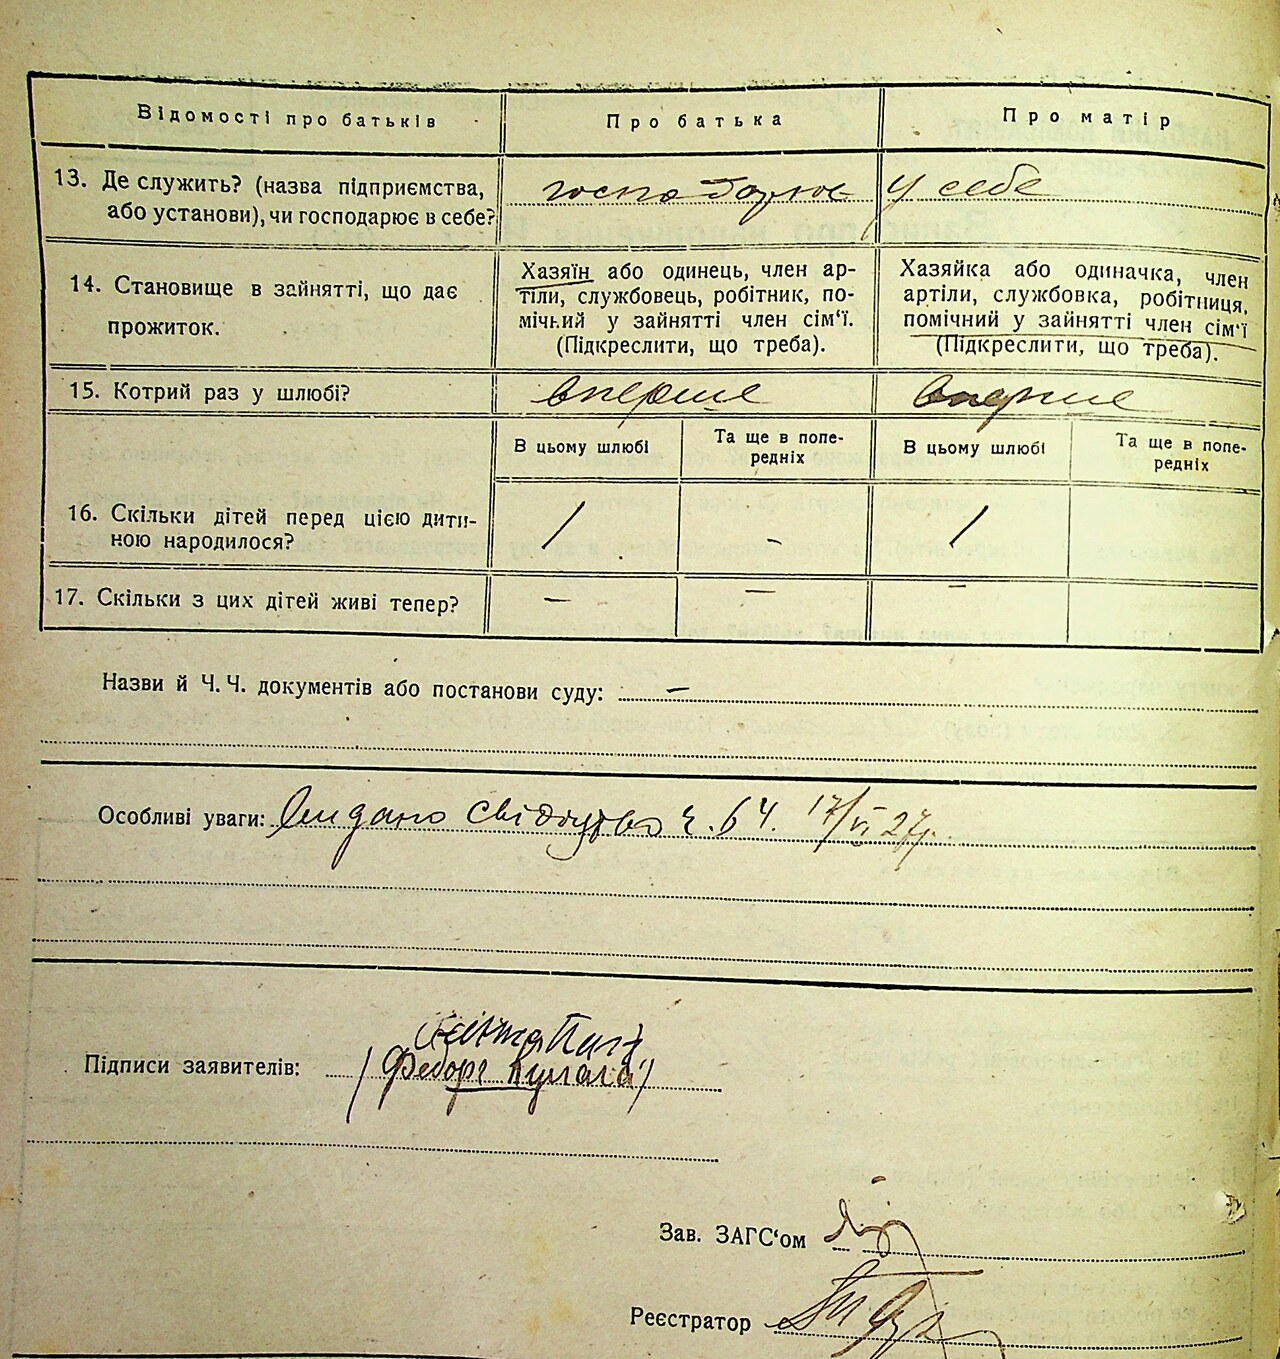 Відомості про батьків
Про батька
Про матір
13. Де служить? (назва підприємства,
або установи), чи господарює в себе?
господарює у себе
14. Становище в зайнятті, що дає
прожиток.
Хазяїн або одинець, член ар-
тіли, службовець, робітник, по-
мічний у зайнятті член сім'ї.
(Підкреслити, що треба).
Хазяйка або одиначка, член
артіли, службовка, робітниця,
помічний у зайнятті член сім'ї
(Підкреслити, що треба).
15. Котрий раз у шлюбі?
вперше
вперше
В цьому шлюбі
Та ще в попе-
редніх
В цьому шлюбі
Та ще в попе-
редніх
16. Скільки дітей перед цією дити-
ною народилося?
/
-
/
17. Скільки з цих дітей живі тепер?
—
—
—
Назви й Ч. Ч. документів або постанови суду: —
Особливі уваги: Видано свідоцтво ч. 64. 17/VI 27р.
Підписи заявителів:
Зав. ЗАГС'ом
Реєстратор